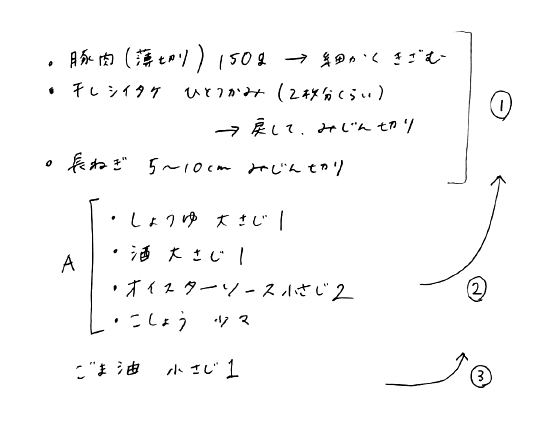 ・豚肉(薄切り) 150g → 細かくきざむ
・干しシイタケ ひとつかみ(2枚分くらい)
→ 戻して、みじん切り
・長ねぎ 5〜10cm みじん切り
①
A
・しょうゆ 大さじ1
・酒 大さじ1
・オイスターソース小さじ2
・こしょう 少々
②
ごま油 小さじ1
③